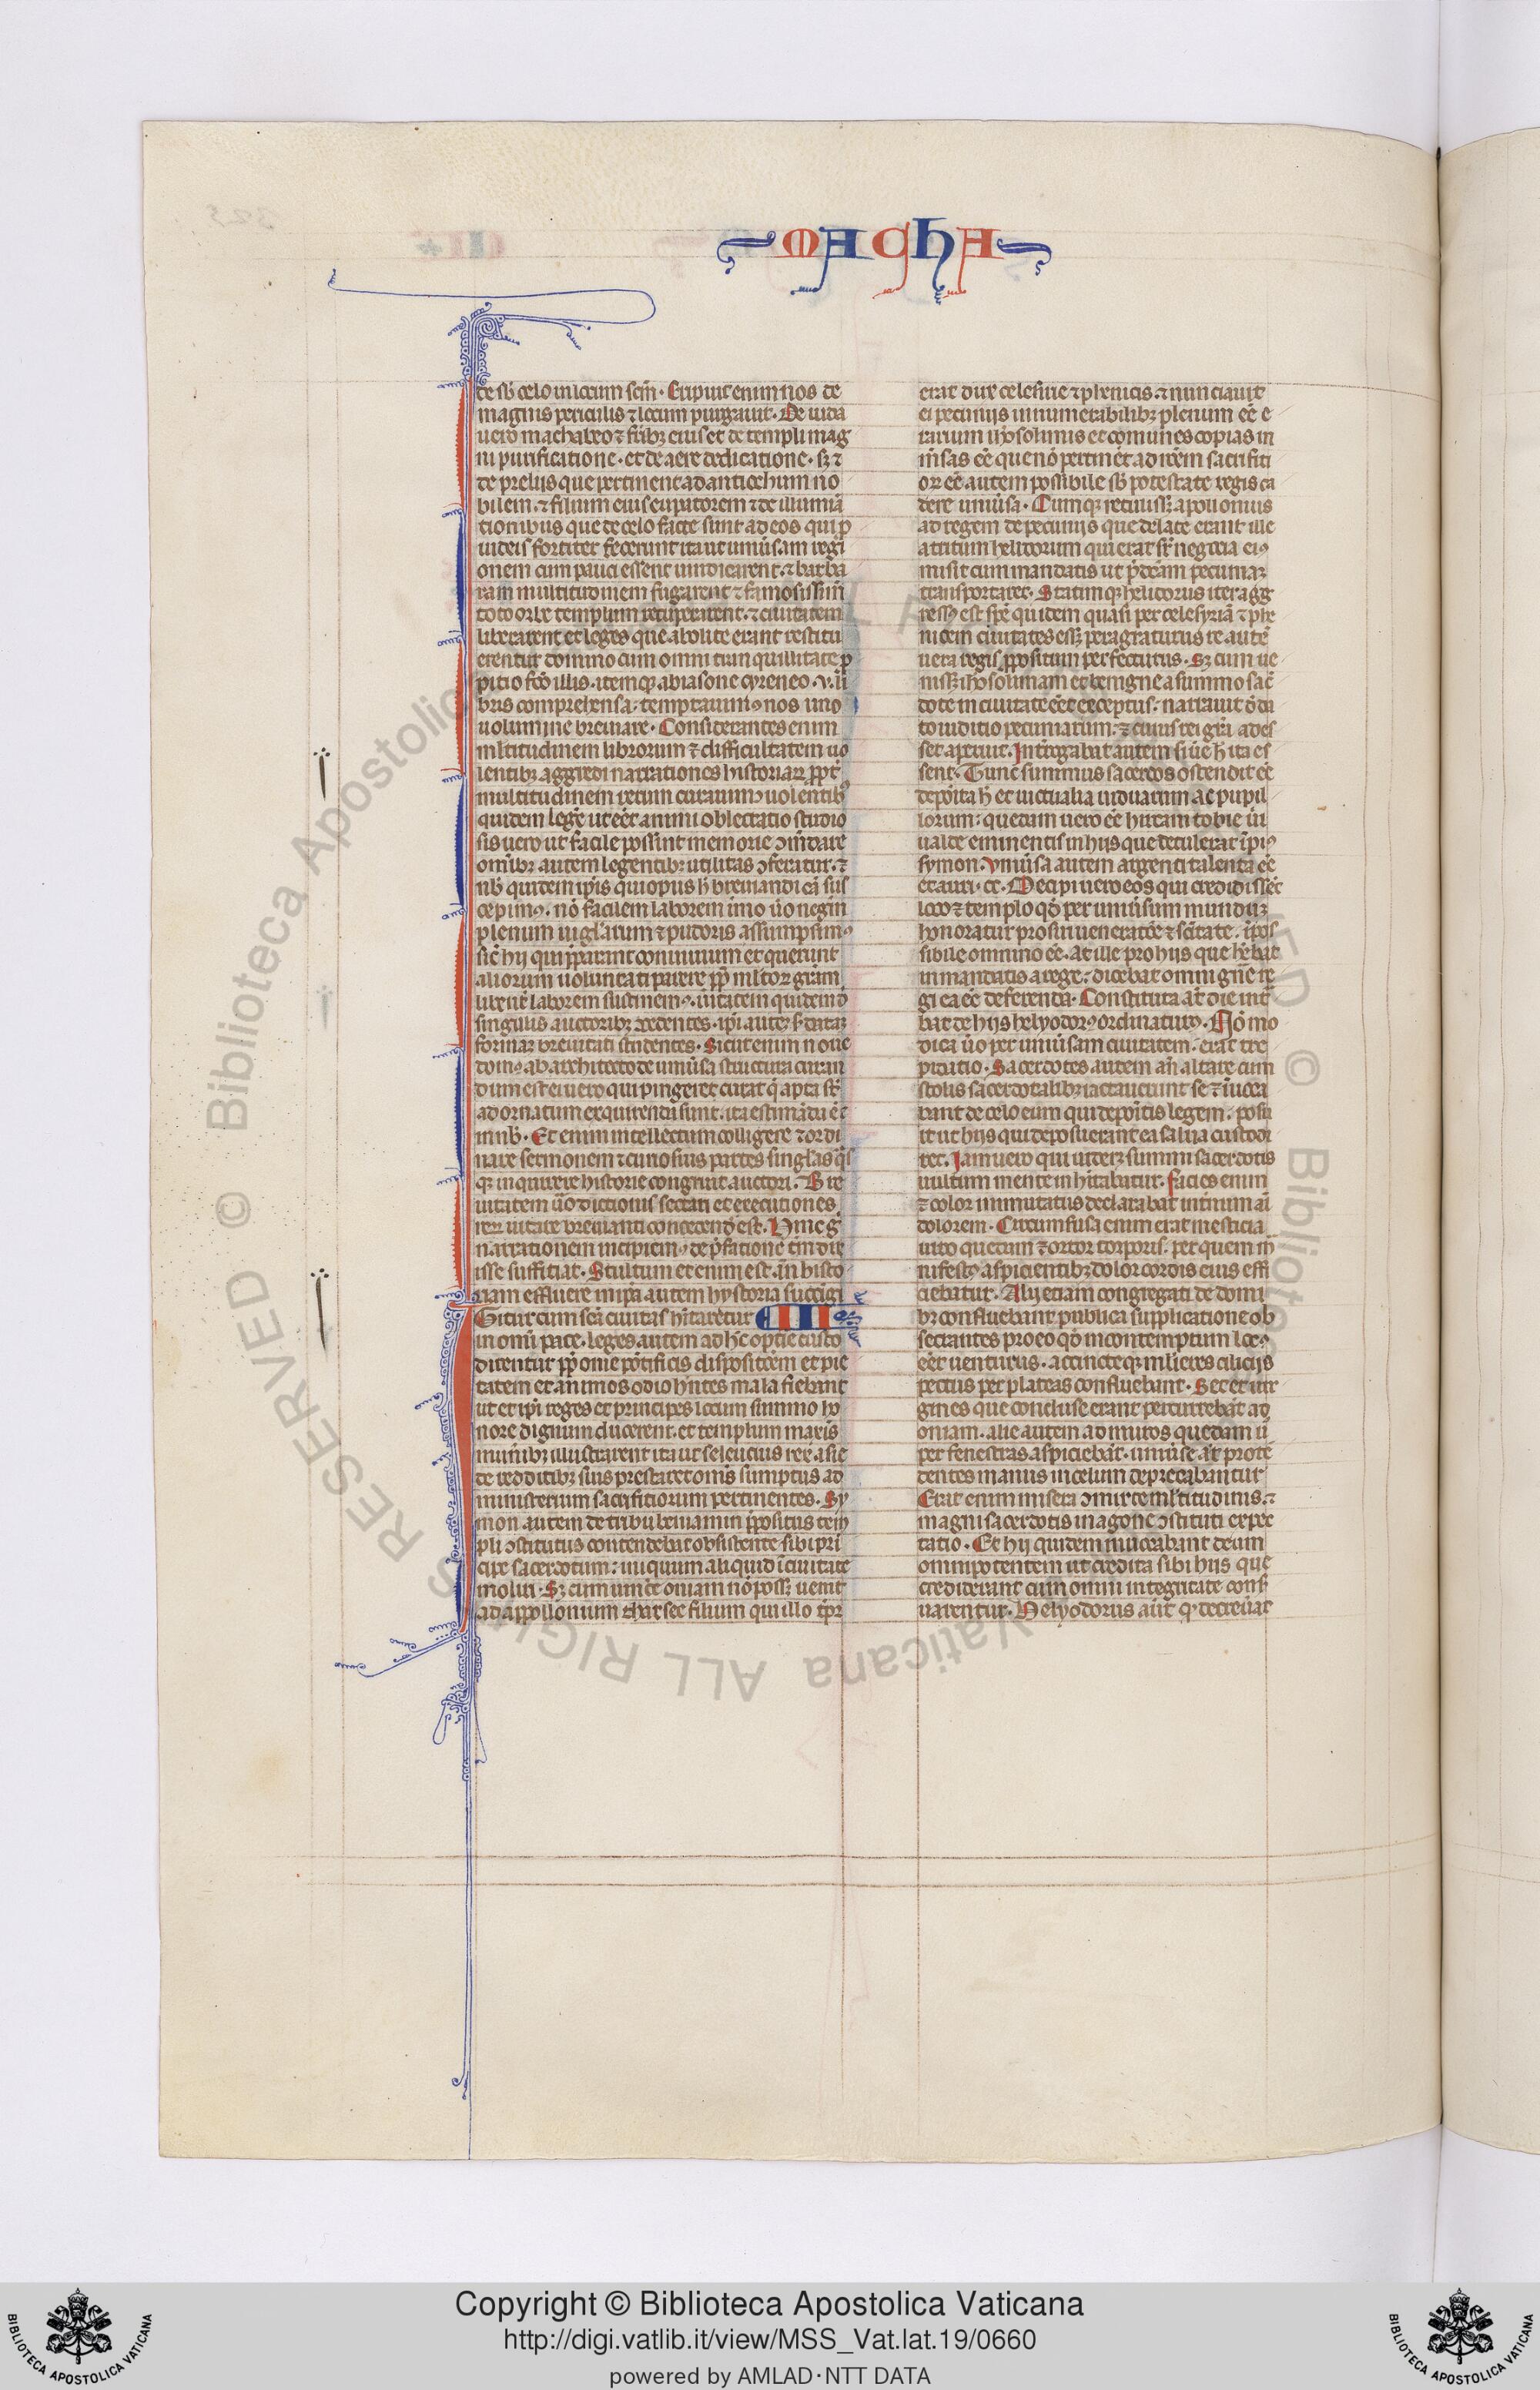 MACHA
de sb̾ celo in locum scm̄ . Eripuit enim nos de
magnis periculis ⁊ locum purgauit . De iuda
uero machabeo ⁊ frīb; eius et de templi mag
ni purificatione . et de aere dedicatione . sꝫ ⁊
de preliis que pertinent ad antiochum no
bilem . ⁊ filium eius eupatorem ⁊ de illuminā
tionibus que de celo facte sunt ad eos qui p̄
iudeis fortiter fecerunt ita ut uniūsam regi
onem cum pauci essent uindicarent . ⁊ barba
ram multitudinem fugarent ⁊ famosissim̄
toto orbe templum recuperarent . ⁊ ciuitatem
liberarent et leges que abolite erant restitu
erentur domino cum omni tranquillitate p̄
pitio fcō illis . itemqꝫ ab iasone cyreneo . v . li
bris comprehensa . temptauimꝰ nos uno
uolumine breuiare . Considerantes enim
mltitudinem librorum ⁊ difficultatem uo
lentibꝫ aggredi narrationes historiaꝝ ꝓpt̄
multitudinem rerum curauimꝰ uolentibꝰ
quidem legē ut eēt animi oblectatio studio
sis uero ut facile possint memorie ɔmdare
omībꝫ autem legentibꝫ utilitas ɔferatur . ⁊
nb̄ quidem ipīs qui opus h̄ breuiandi cā sus
cepimꝰ . nō facilem laborem imo ūo negm̄
plenum uigiliarum ⁊ sudoris assumpsimꝰ
sic̄ hij qui p̄parant conuiuium et querunt
aliorum uoluntati parere ꝓp̄ mltoꝝ grām
libent̄ laborem sustinemꝰ . ūitatem quidem d̄
singulis auctoribꝫ ɔcedentes . ipī autē s̄ datā
formaꝝ breuitati studentes . Sicut enim noue
domꝰ ab architecto de uniūsa structura curan
dum est ei uero qui pingere curat q̄ apta st̄
ad ornatum exquirenda sunt . ita estimādū ē ⁊
in nb̄ . Et enim intellectum colligere ⁊ ordi
nare sermonem ⁊ curiosius partes singlas q̄s
qꝫ inquirere historie congruit auctori . Bre
uitatem ūo dictionis sectari et executiones
reꝝ uitare breuianti concedendū est . Hinc g̊
narrationem incipiemꝰ de p̄fatione tm̄ dix
isse suffitiat . Stultum et enim est . an̄ histo
riam effluere in ipā autem hystoria succigi
Gitur cum scā ciuitas hītaretur III
in omī pace . leges autem ad hc̄ optīe custo
direntur ꝓp̄ onīe pōtificis dispositōem et pie
tatem et animos odio hn̄tes mala fiebant
ut et ipī reges et principes locum summo ho
nore dignum ducerent . et templum maxīs
munībꝫ illustrarent ita ut seleucus rex asie
de redditibꝫ suis prestaret omīs sumptus ad
ministerium sacrifitiorum pertinentes . Sy
mon autem de tribu beniamin p̄positus tem
pli ɔstitutus contendebat obsistente sibi pri
cipe sacerdotum : iniquum aliquid ī ciuitate
moliri . Sꝫ cum uincē oniam nō possꝫ uenit
ad appollonium tharsee filium qui illo tp̄r
erat dux celesirie ⁊ phenicis . ⁊ nunciauit
ei pecunijs innumerabilibꝫ plenum eē e
rarium iherosolimis et comunes copias in
m̄sas eē que nō pertinēt ad rōem sacrifiti
oꝝ eē autem possibile sb̄ potestate regis ca
dere uniūsa . Cumqꝫ retulissꝫ apollonius
ad regem de pecunijs que delate erant ille
accitum heliodorum qui erat sr̄ negocia eiꝰ
misit cum mandatis ut p̄dc̄am pecuniaꝫ
transportaret . Statimqꝫ heliodorus iter aggr
ressꝰ est spē quidem quasi per celesyriā ⁊ phe
nicem ciuitates essꝫ peragraturus re autē
uera regis ꝓpositum perfecturus . Sꝫ cum ue
nissꝫ iherosolimam et benigne a summo sac̄
dote in ciuitate eēt exceptus . narrauit d̄ da
to inditio pecuniarum . ⁊ cuius rei grā ades
set aperuit . Interogabat autem si uē h̄ ita es
sent . Tunc summus sacerdos ostendit eē
deposita h̄ et uictualia uiduarum ac pupil
lorum : quedam uero eē hircani tobie ūi
ualde eminentis in hijs que detulerat impiꝰ
symon . Vniūsa autem argenti talenta eē
et auri . cc . Decipi uero eos qui credidissēt
loco ⁊ templo qd̄ per uniūsum munduꝫ
honoratur pro sui ueneratōe ⁊ scītate . ipos
sibile omnino eē . At ille pro hijs que hēbat
in mandatis a rege : dicebat omni gn̄e re
gi ea eē deferenda . Constituta at̄ die int̄
bat de hijs helyodorꝰ ordinaturꝰ . Nō mo
dica ūo per uniūsam ciuitatem . erat tre
pidatio . Sacerdotes autem an̄ altare cum
stolis sacerdotalibꝫ iactauerunt se ⁊ īuoca
bant de celo eum qui de positis legem . posu
it ut hijs qui deposuerant ea salua custodi
ret . Iam uero qui uideꝫ summi sacerdotis
uultum mente uulnerabatur . facies enim
⁊ color inmutatus declarabat internum aī
dolorem . Circumfusa enim erat mesticia
uiro quedam ⁊ orror corporis . per quem m̄
nifestꝰ aspicientibꝫ dolor cordis eius effi
ciebatur . Alij etiam congregati de domi
bꝫ confluebant publica supplicatione ob
secrantes pro eo qd̄ in contemptum locꝰ
eēt uenturus . accincteqꝫ mlieres cilicijs
pectus per plateas confluebant . Sed et uir
gines que concluse erant percurrebāt ad
oniam . alie autem ad muros quedam ū
per fenestras aspiciebāt . uniūse at̄ prote
dentes manus in celum deprecabantur
Erat enim misera ɔmixte mltitudinis . ⁊
magni sacerdotis in agone ɔstituti expec
tatio . Et hij quidem inuocabant deum
omnipotentem ut credita sibi hijs que
crediderant cum omni integritate cons̄
uarentur . Helyodorus aūt qꝫ decreuāt
Copyright © Biblioteca Apostolica Vaticana
http://digi.vatlib.it/view/MSS_Vat.lat.19/0660
powered by AMLAD·NTT DATA
BIBLIOTECA APOSTOLICA VATICANA
BIBLIOTECA APOSTOLICA VATICANA